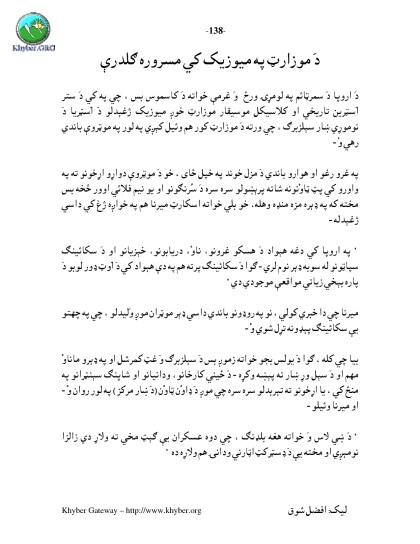 Khyber.ORG
-138-
دَ موزارټ په میوزیک کي مسروره ګلدرې
دَ اروپا دَ سمرټائم په لومړۍ ورځ و غرمې خواته دَ کاسموس بس ، چي په کي دَ ستر
آسټرین تاریخي او کلاسیکل موسیقار موزارټ خوږ میوزک غږېدلو دَ آسټریا دَ
نوموړي ښار سېلزبرګ ، چي ورته دَ موزارټ کور هم وئیل کېږي په لور په موټروې باندي
رهي وُ-
په غرو رغو او هوارو باندي دَ مزل خوند په خپل ځای ، خو دَ موټروې دواړو اړخونو ته په
واورو کي پټ ټاوُنونه شاته پرېښودلو سره سره دَ سُرنګونو او یو نیم فلائي اوور څخه بس
مخته که په ډېره مزه منډه وهله، خو بلي خواته اسکارټ میرنا هم په خواږه ژغ کي داسي
غږېدله-
" په اروپا کي دغه هېواد دَ هسکو غرونو، ناوُ، دریابونو، خېزیانو او دَ سکائینګ
سپاټونو له سوبه ډېر نوم لري- ګوا دَ سکائینګ پرته هم په دې هېواد کي دَ آوټ ډور لوبو دَ
پاره بېخي زیاتي مواقعې موجودي دي"
میرنا چي دا خبري کولې ، نو په روډونو باندي داسي ډېر موټران موږ ولیدلو ، چي په چهتو
یې سکائینګ پېډونه تړل شوي وُ-
بیا چي کله ، ګوا دَ یولس یجو خواته زموږ بس دَ سېلزبرګ وَ غټ کمرشل او په ډېرو ماناوُ
مهم او دَ سېل وړ ښار ته پېښه وکړه- دَ ځیني کارخانو ، ودانیانو او شاپنګ سېنټرانو په
منځ کي ، یا اړخونو ته تېرېدلو سره سره چي موږ دَ ډاوُن ټاوُن (دَ ښار مرکز) په لور روان وُ-
او میرنا وئیلو-
" دَ ښي لاس وَ خواته هغه بلډنګ ، چي دوه عسکران یې ګېټ مخي ته ولاړ دي زالزا
نومېږي او مخته یې دَ ډسټرکټ اټارني ودانۍ هم ولاړه ده "
Khyber Gateway – http://www.khyber.org
لیک: افضل شوق